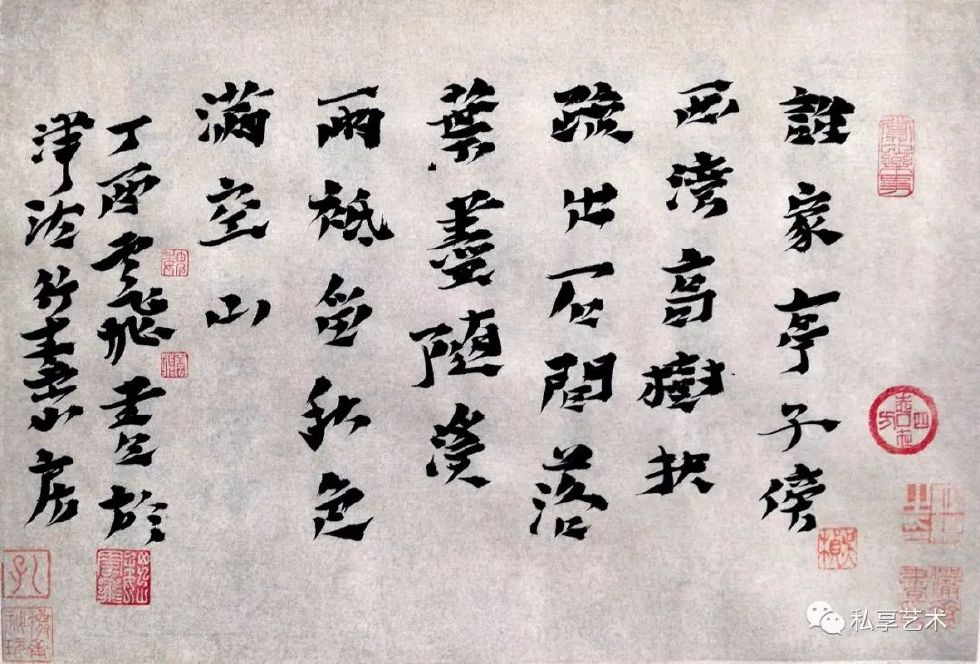 誰家亭子傍
西灣高樹扶
疏出石間落
葉盡隨溪
雨祗留秋色
滿空山
丁酉雲飛書於
津沽竹素山房
私享艺术